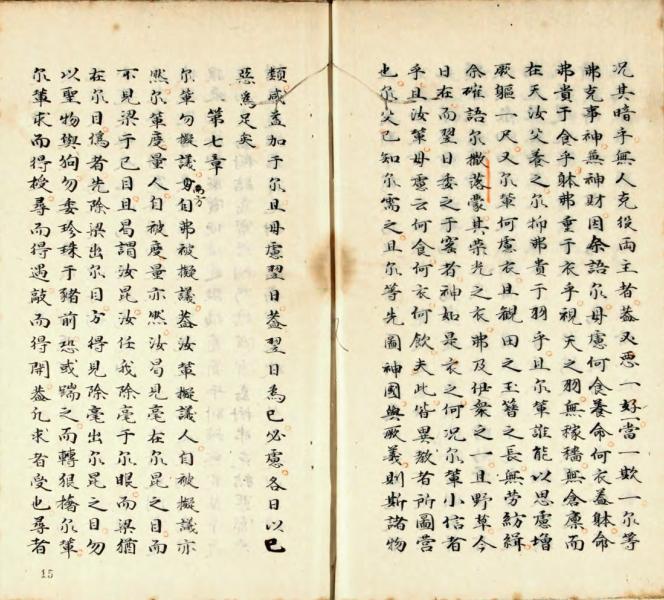 况其暗乎無人克役両主者葢又惡一好一當一欺一尓等
弗克事神兼神財因余語尓毋慮何食養命何衣葢躰命
弗貴于食乎躰弗重于衣乎視天之羽無稼穡無倉廪而
在天汝父養之尓抑弗貴于羽乎且尓輩誰能以思慮增
厥軀一尺又尓輩何慮衣且觀田之玉簪之長無劳紡緝
余確語尓撒落蒙其崇光之衣弗及伊衆之一且野草今
日在而翌日委之于窑者神如是衣之何况尓輩小信者
乎且汝等毋慮云何食何衣何飲夫此皆異教者所圖营
也尓父已知尓需之且尓等先圖神國與厥義則斯諸物
類咸益加于尓且毋慮翌日葢翌日為已必慮各日以已
惡為足矣
第七章
尓輩勿擬議毋而方自弗被擬議葢汝輩擬議人自被擬議亦
然尓輩度量人自被度量亦然汝曷見毫在尓昆之目而
不見梁于已目且曷謂汝昆汝任我除毫于尓眼而梁猶
在尓目偽者先除梁出尓目方得見除毫出尓昆之目勿
以聖物與狗勿委珍珠于豬前恐或踹之而轉狠搐尓輩
尓輩求而得授尋而得遇敲而得開葢凢求者受也尋者
15